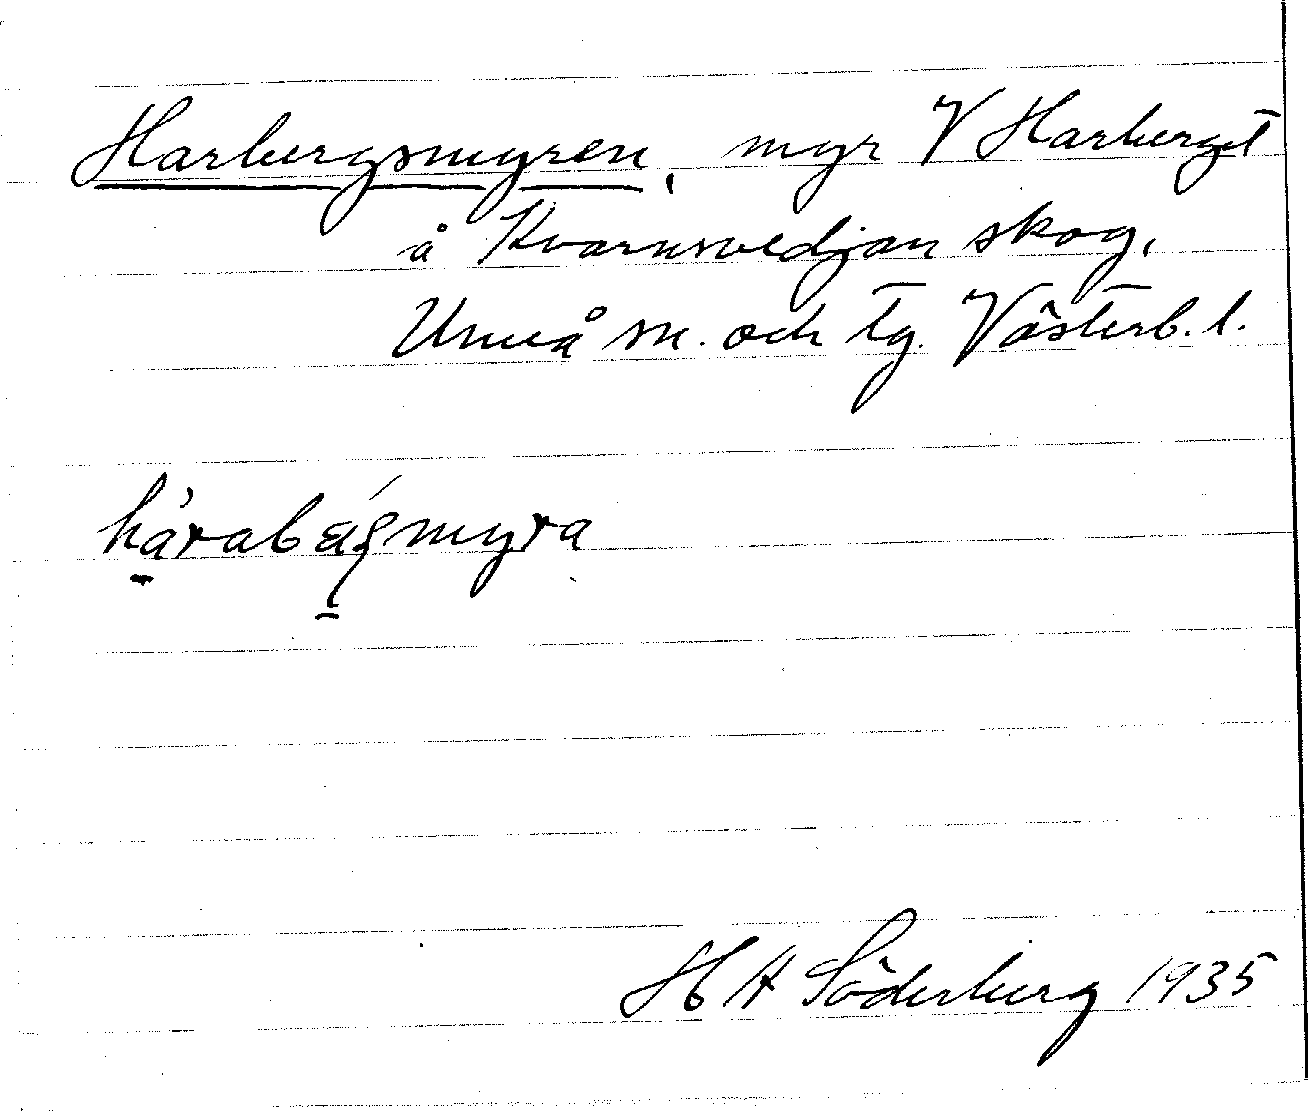 Harbergsmyren, myr V Harberget
å Kvarnsvedjan skog,
Umeå sn. och tg. Västerb. l.
håraba̱gmyra
H A Söderberg 1935